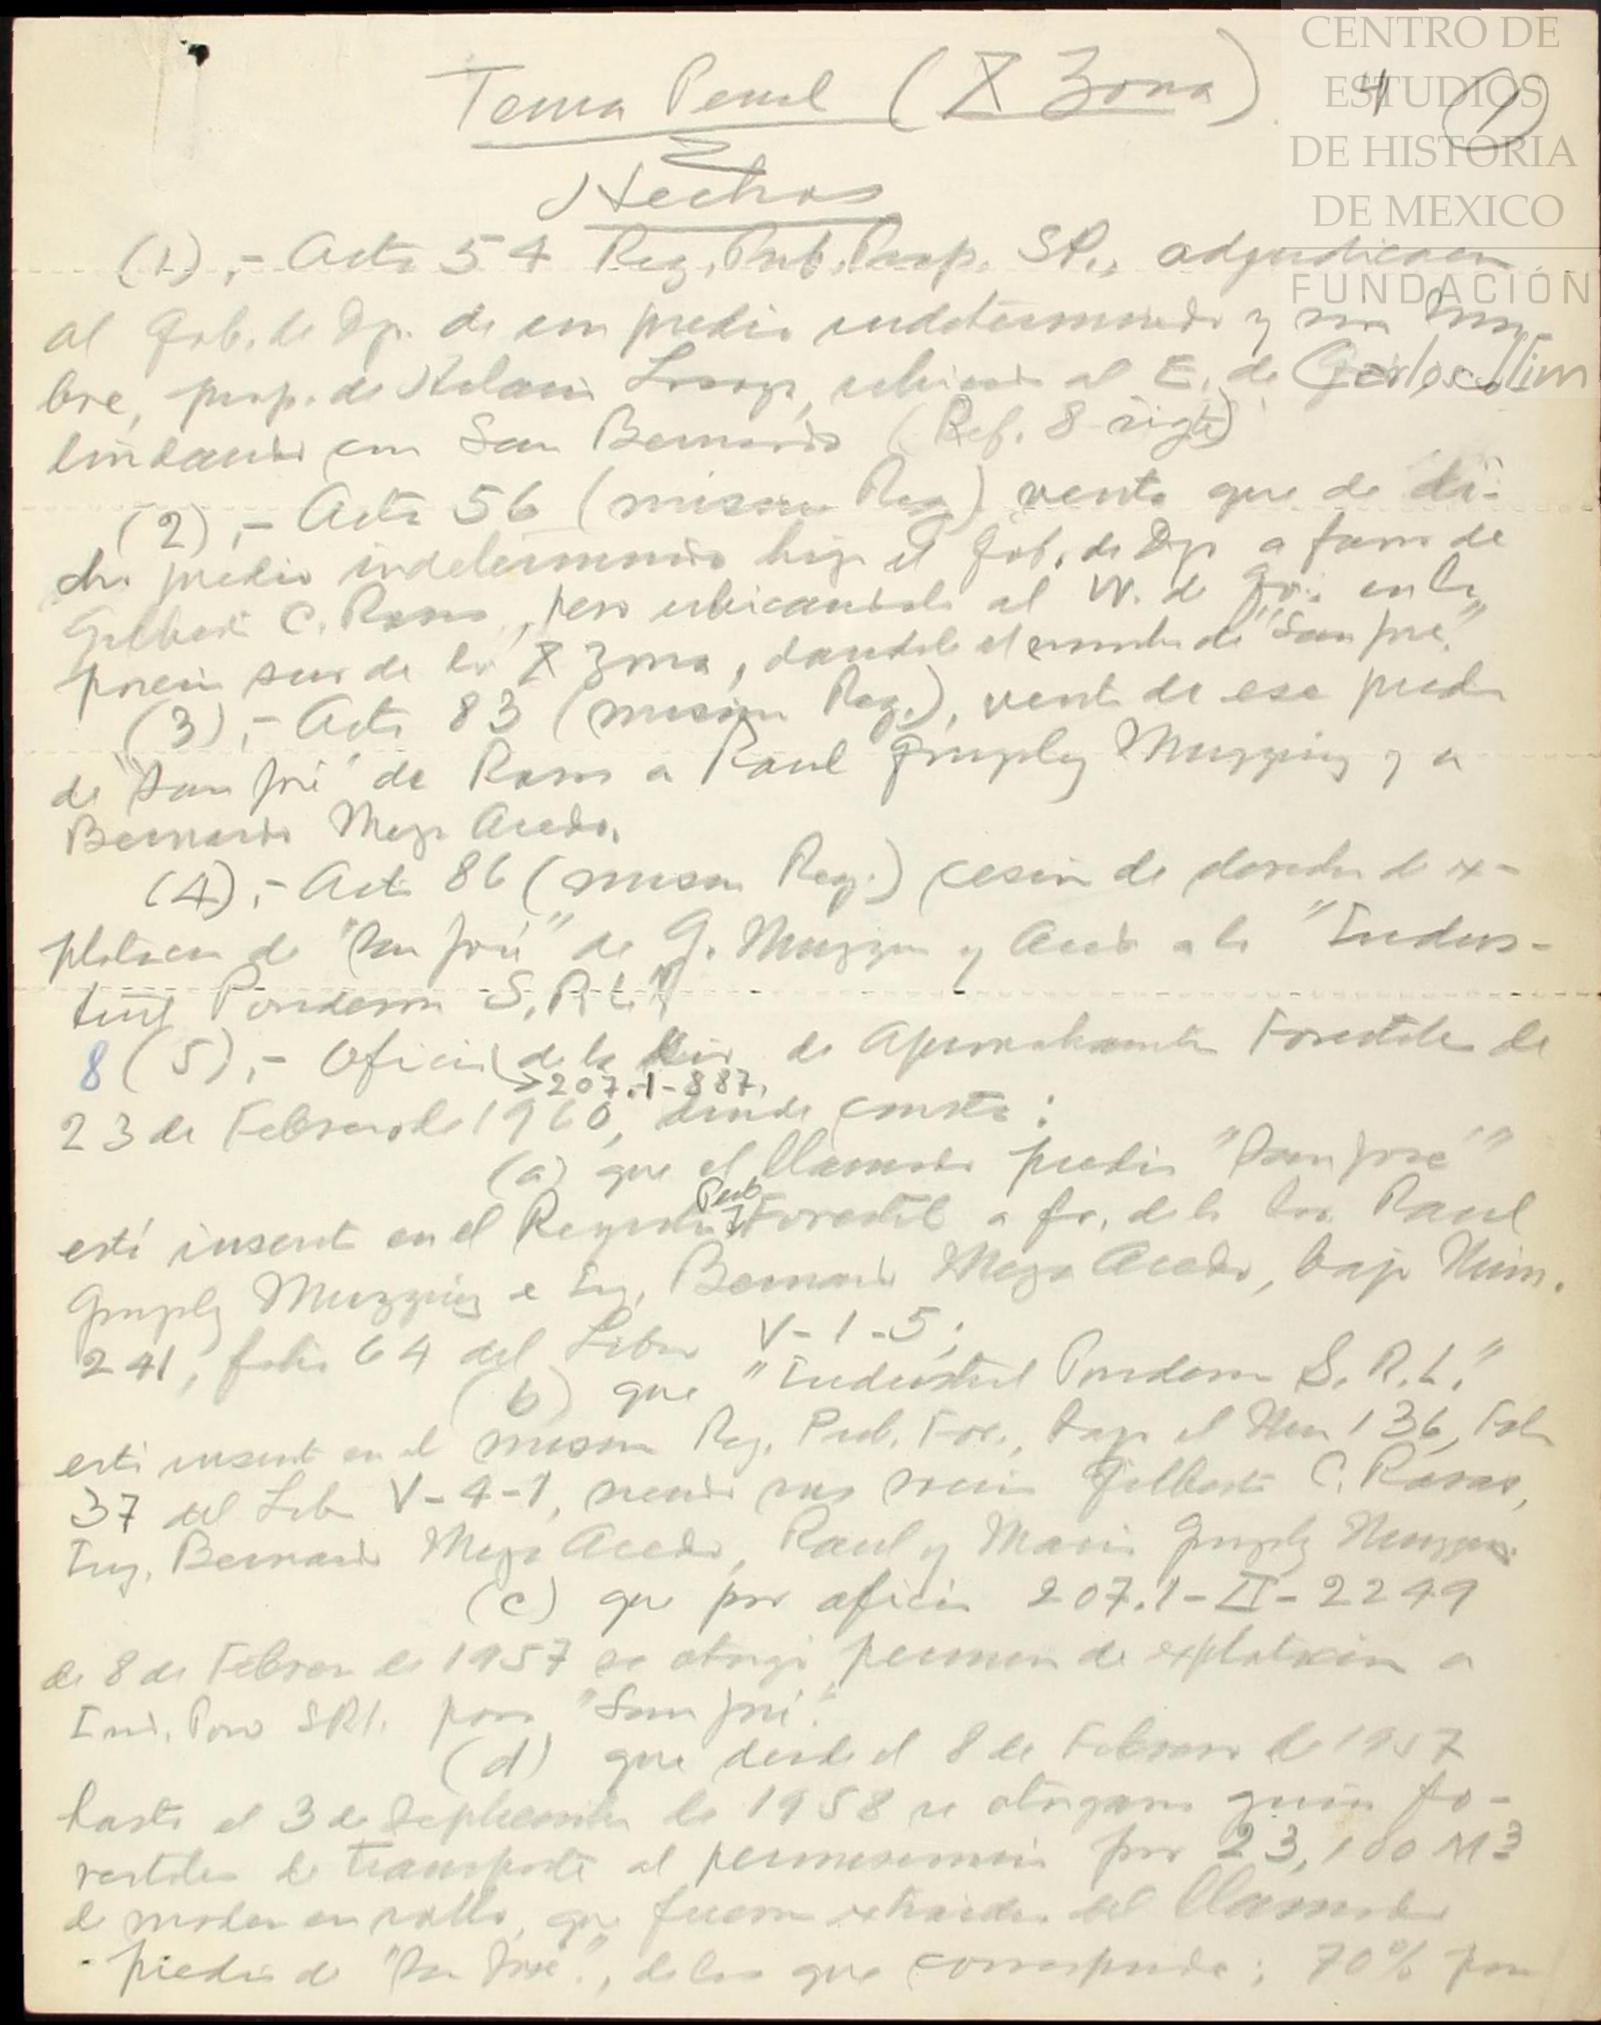 CENTRO DE
ESTUDIOS
DE HISTORIA
DE MEXICO
FUNDACIÓN
Carlos Slim
Tema Penal (X Zona) 4 (1)
Hechos
(1),- Acta 54 Reg. Pub. Prop. SP., adjudicacn
al Gob. de Dgo. de un predio indeterminado y sin nom-
bre, prop. de Loaiza, ubicado al E. de
lindando con San Bernardo (Ref. 8 sigte)
(2),- Acta 56 (mismo Reg) venta que de di-
cho predio indeterminado hizo el Gob. de Dgo a favor de
Gilberto C. Rosas, pero ubicandolo al W. de en la
porcin sur de la X Zona, dandole el nombre de "San José".
(3),- Acta 83 (mismo Reg.), venta de ese predio
de "San José" de Rosas a Raul Gonzalez Muzquiz y a
Bernardo Meza Acedo.
(4),- Acta 86 (mismo Reg.) cesin de derechos de ex-
plotacin de "San José" de G. Muzquiz y Acedo a la "Indus-
trial Ponderosa S.R.L."
8 (5),- Oficio de la Dir. de Aprovechamientos Forestales de
207.1-887.
23 de Febrero de 1960, donde consta:
(a) que el llamado predio "San José"
está inscrito en el Registro Pub. Forestal a fv. de los Sres. Raul
Gonzalez Muzquiz e Ing. Bernardo Meza Acedo, bajo Núm.
241, folio 64 del Libro V-1-5;
(b) que "Industrial Ponderosa S.R.L."
está inscrito en el mismo Reg. Pub. For., bajo el Num 136, Folio
37 del Libro V-4-1, siendo sus socios Gilberto C. Rosas,
Ing. Bernardo Meza Acedo, Raul y Mario Gonzalez Muzquiz.
(c) que por oficio 207.1-II-2249
de 8 de Febrero de 1957 se otorgó permiso de explotación a
Ind. Pon SRL. para "San José".
(d) que desde el 8 de Febrero de 1957
hasta el 3 de Septiembre de 1958 se otorgaron guías fo-
restales de transporte al permisionario por 23,100 M3
de madera en rollo, que fueron extraidos del llamado
predio de "San José", de los que corresponde: 70% por